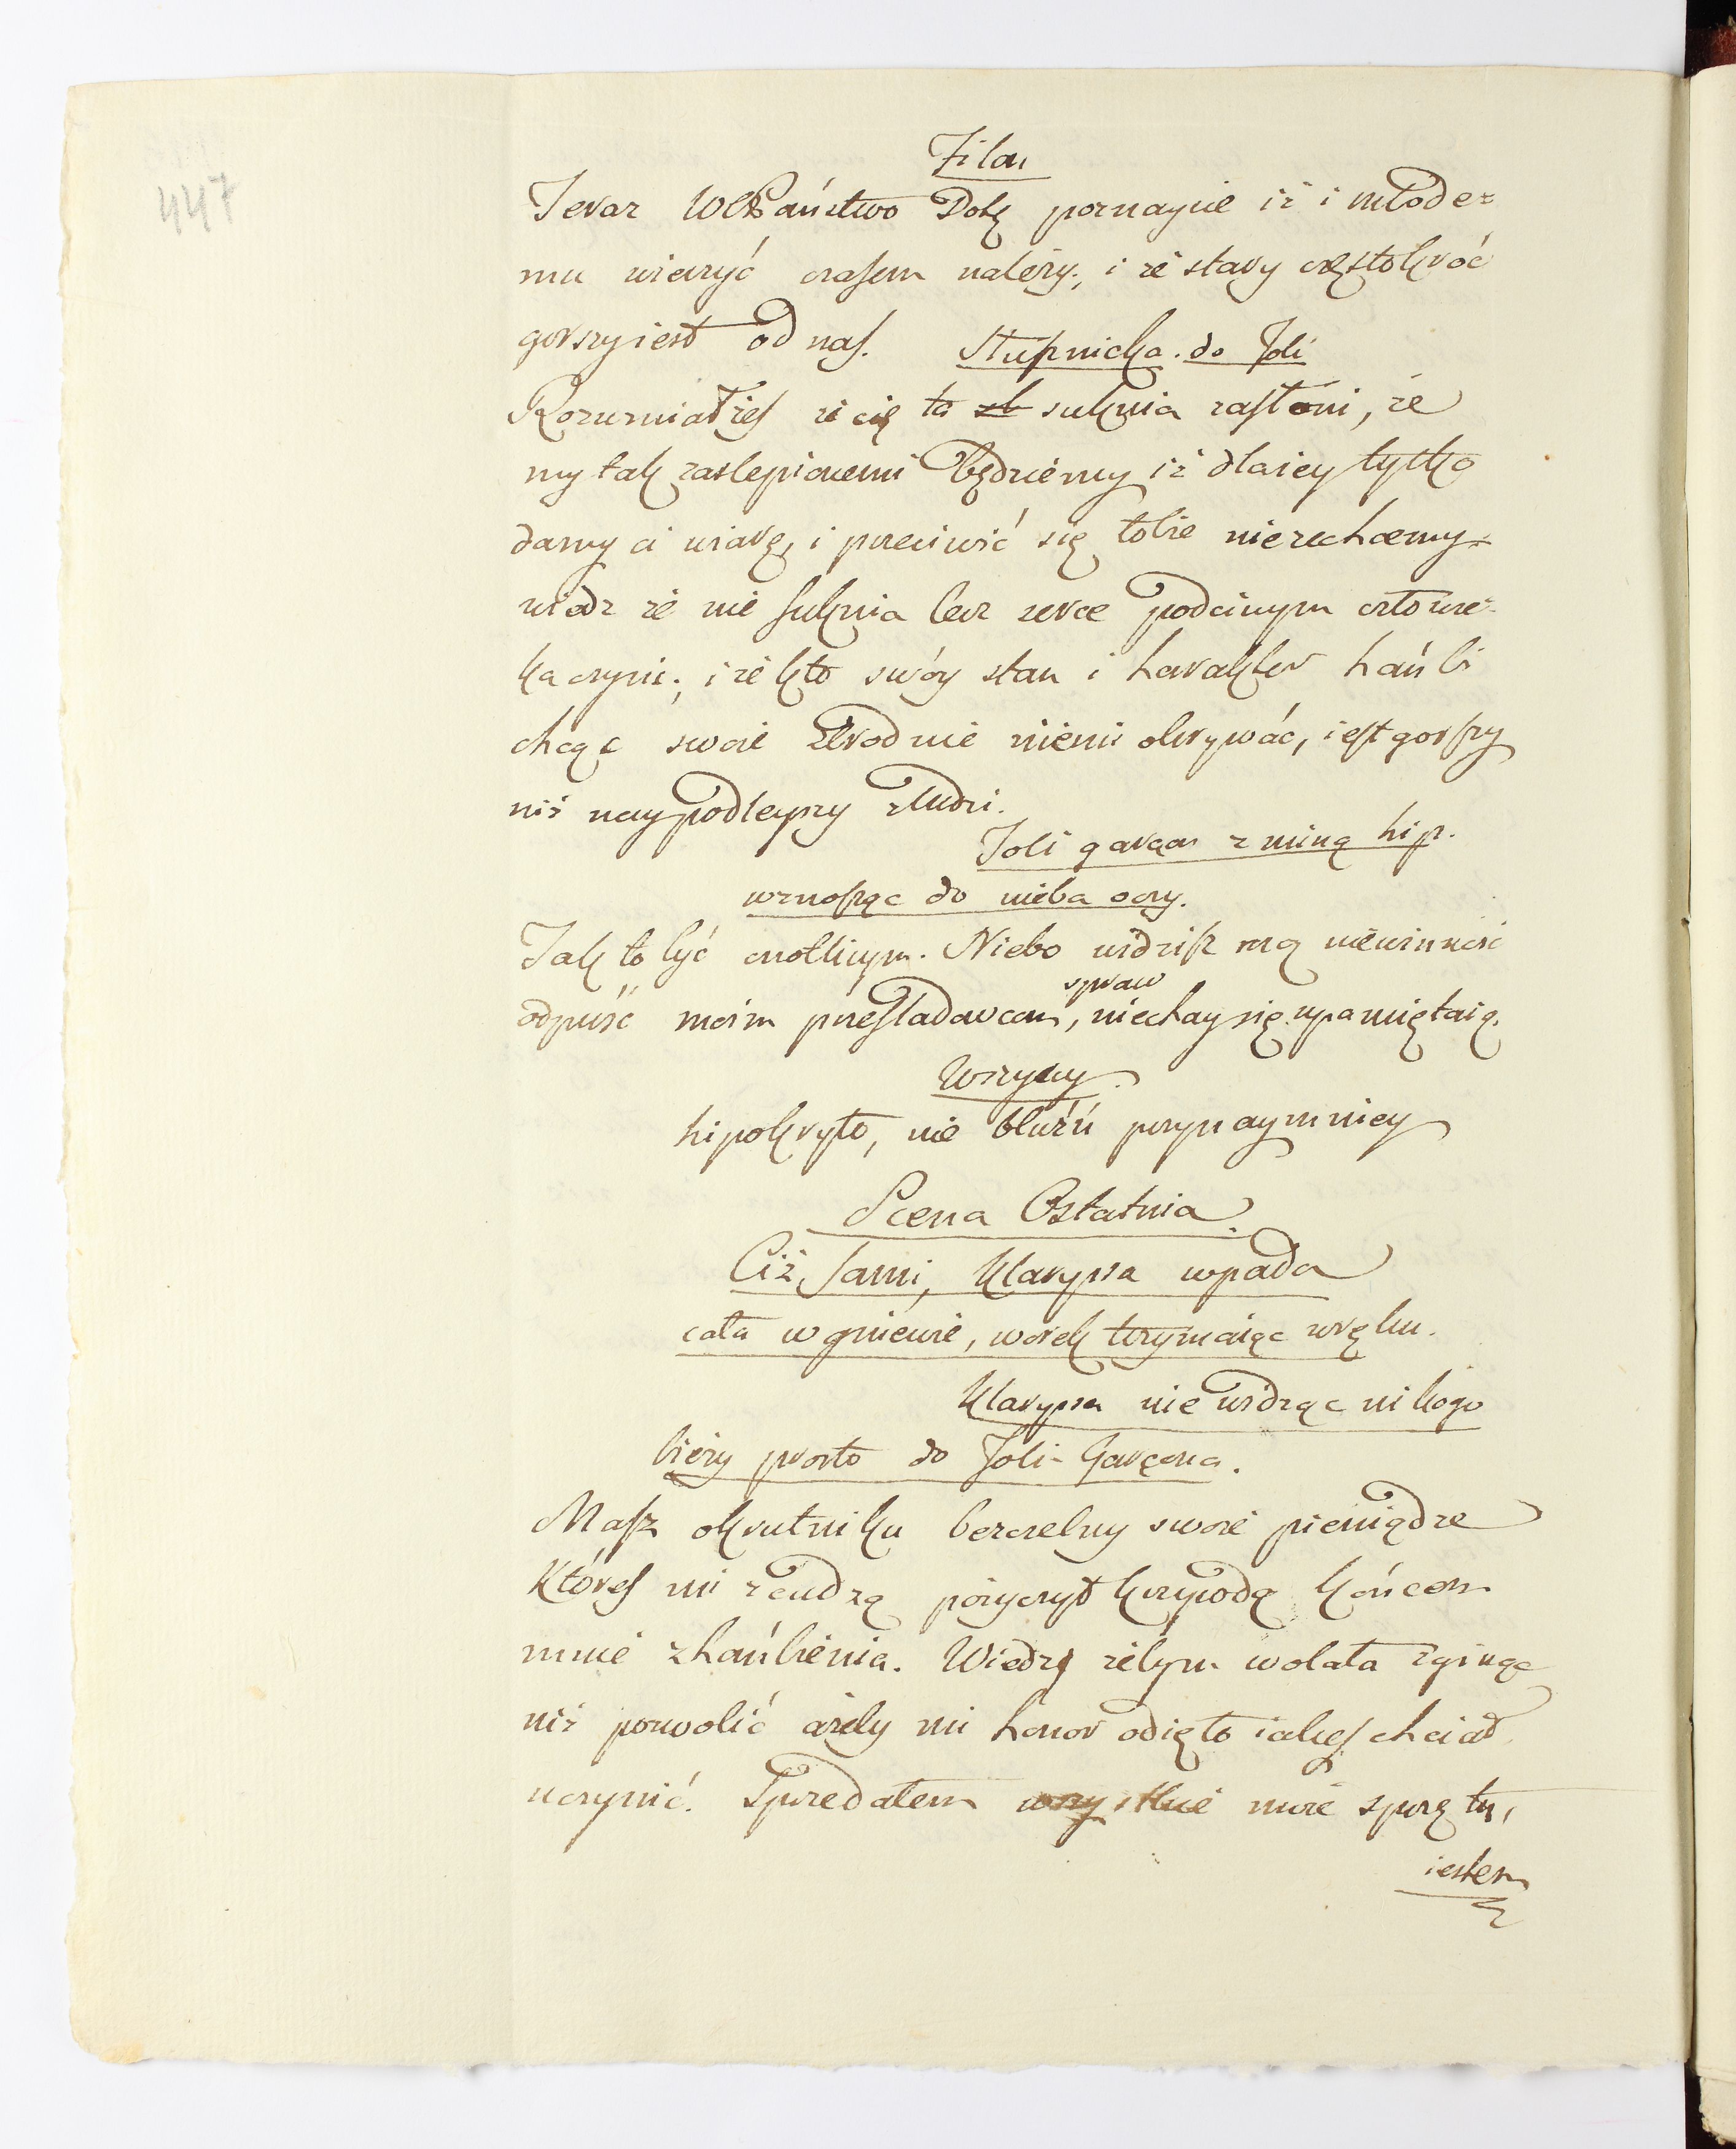 447
Filon
Teraz WPaństwo Dobr poznaycie iż i młode=
mu wierzyć czasem należy, i że stary częstokroć
gorszy iest od nas. Stupnicka. do Joli
Rozumiałżeś że cię ta suknia zasłoni, że
my tak zaslepionemi będziemy iż dlaiey tylko
damy ci wiarę, i przeciwić się tobie niezechcemy=
wiedz że nie suknia lecz serce poćciwym człowie-
ka czyni; i że kto swóy stan i harakter hańbi
chcąc swoie zbrodnie niemi okrywać, iest gorszy
niż naypodleyszy złudzi.
Joli garçon z miną hip.
wznosząc do nieba oczy.
Jak to być cnotliwym. Niebo widzisz mą niewinność
spraw
odpuść moim prześladowcom, niechay się upamiętaią.
Wszyscy.
hipokryto, nie bluźń przynaymniey
Scena Ostatnia.
Ciż sami, Klaryssa wpada
cała w gniewie, worek trzymaiąc wręku.
Klaryssa nie widząc nikogo
bieży prosto do Joli-Garçona.
Masz okrutniku bezczelny swoie pieniądze
Któreś mi zcudzą pożyczył krzywdą końcem
mnie zhańbienia. Wiedz żebym wolała zginąć
niż pozwolić ażeby mi honor odięto iakeś chciał
uczynić. Sprzedałem wszystkie moie sprzęty,
iestem